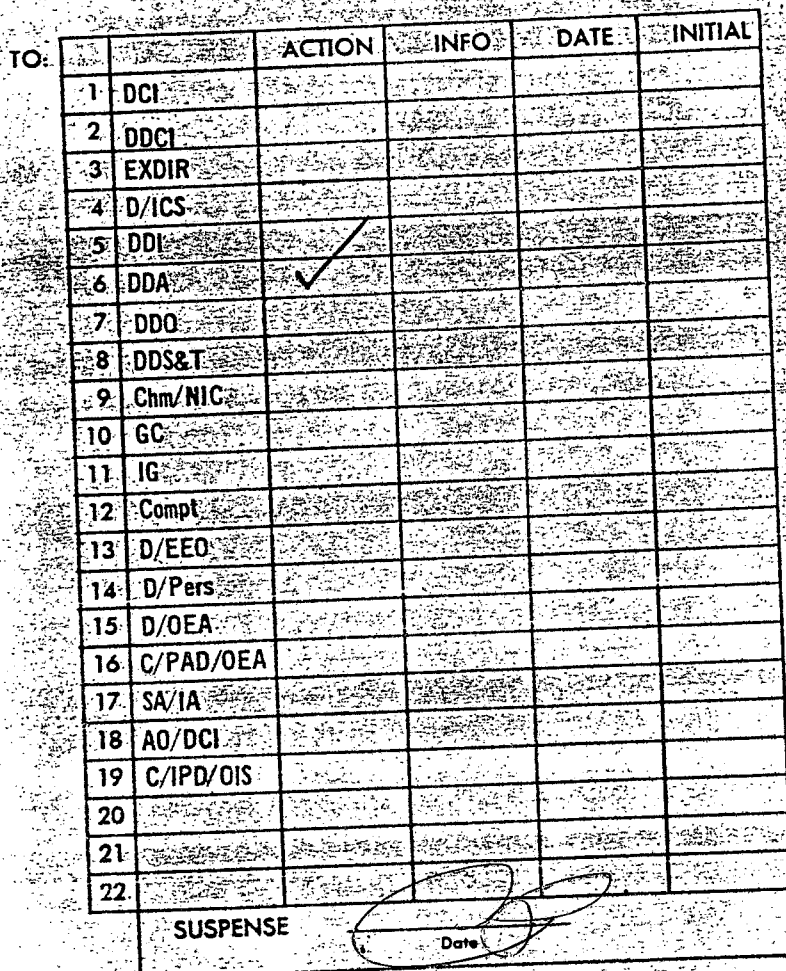 TO: ACTION INFO DATE INITIAL
1 DCI
2 DDCI
3 EXDIR
4 D/ICS
5 DDI
6 DDA ✓
7 DDO
8 DDS&T
9 Chm/NIC
10 GC
11 IG
12 Compt
13 D/EEO
14 D/Pers
15 D/OEA
16 C/PAD/OEA
17 SA/IA
18 AO/DCI
19 C/IPD/OIS
20
21
22
SUSPENSE
Date